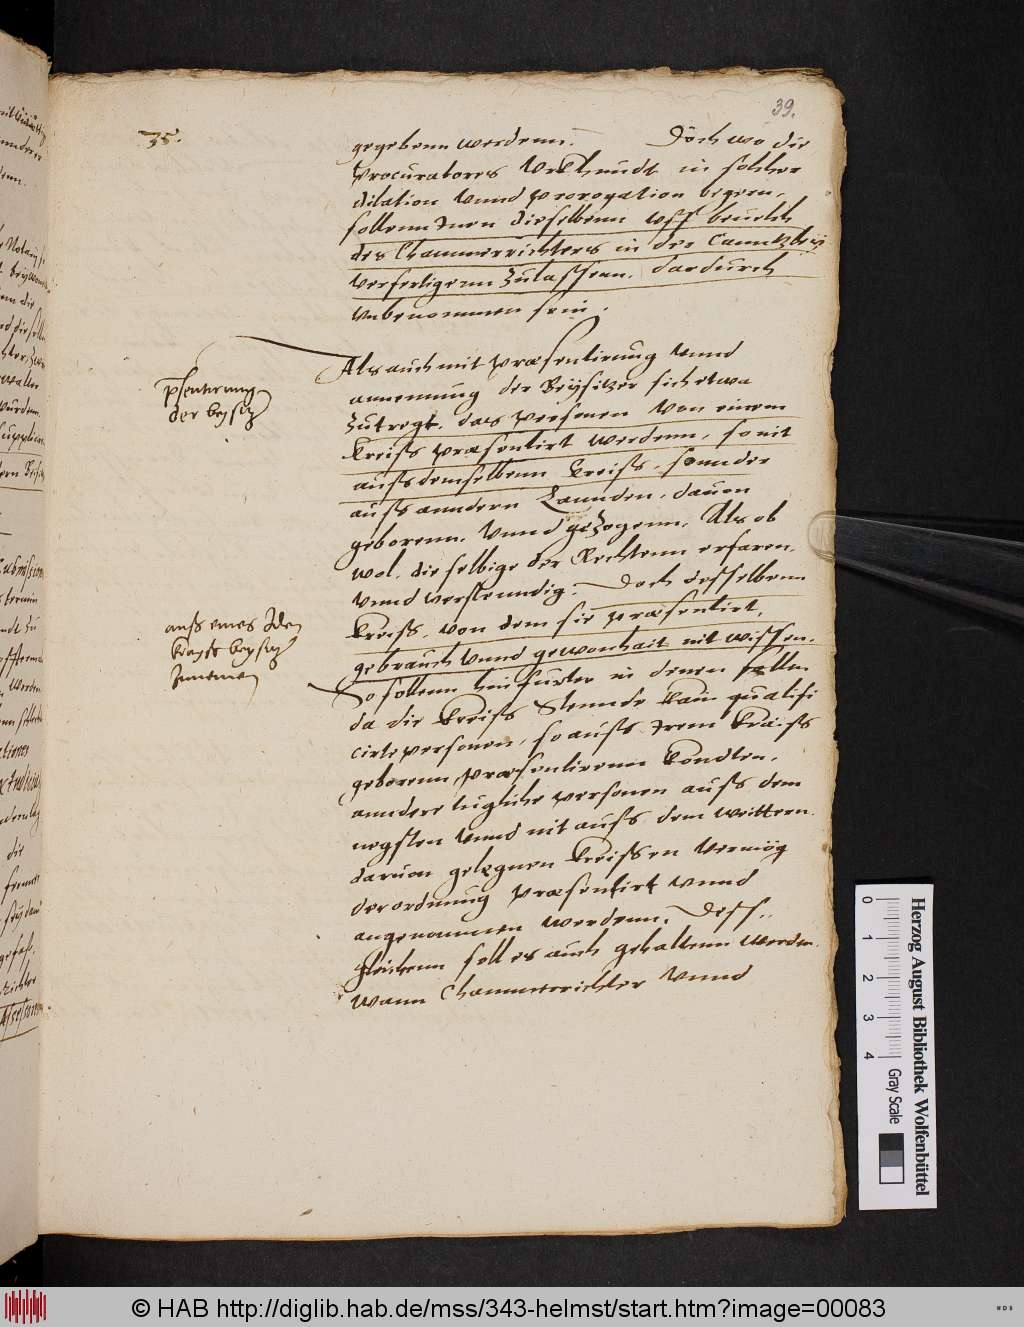 39.
35.
gegebenn werdenn. Doch wo die
Procuratores Vrkhundt in solcher
dilation vnnd prorogation begern,
sollenn Inen dieselbenn vff beuelch
des Chammerrichters in der Canntzleÿ
verfertigenn zulassenn, dardurch
vnbenommen sein.
Als auch mit præsentierung vnnd
annemung der Beÿsitzer sich etwa
zutregt, das personen von einem
Kreiß præsentirt werdenn, so nit
auß demselbenn Kreiß, sonnder
auß anndern Lannden, dauon
geborenn, vnnd gezogenn, Als ob
wol, die selbige der Rechtenn erfaren,
vnnd verstenndig, Doch desselbenn
Kreiß, von dem sie præsentirt,
gebrauch vnnd gewonhait nit wissen,
So sollenn hinfurter in denen fellen
da die Kreiß Stennde kain qualifi
cirte personen, so auß Irem Kraiß
geborenn, præsentirenn kondten,
anndere tugliche personen auß dem
negsten vnnd nit auß dem weittern
daruon gelegnen Kreissen vermög
der ordnung præsentirt vnnd
angenommen werdenn. Dess-
gleichenn soll es auch gehaltenn werden,
wann Chammerrichter vnnd
psentirung
der beysitz
auß eines Iden
krayß beysitz
zunemen
0 1 2 3 4
Herzog August Bibliothek Wolfenbüttel
Gray Scale
© HAB http://diglib.hab.de/mss/343-helmst/start.htm?image=00083
WDB